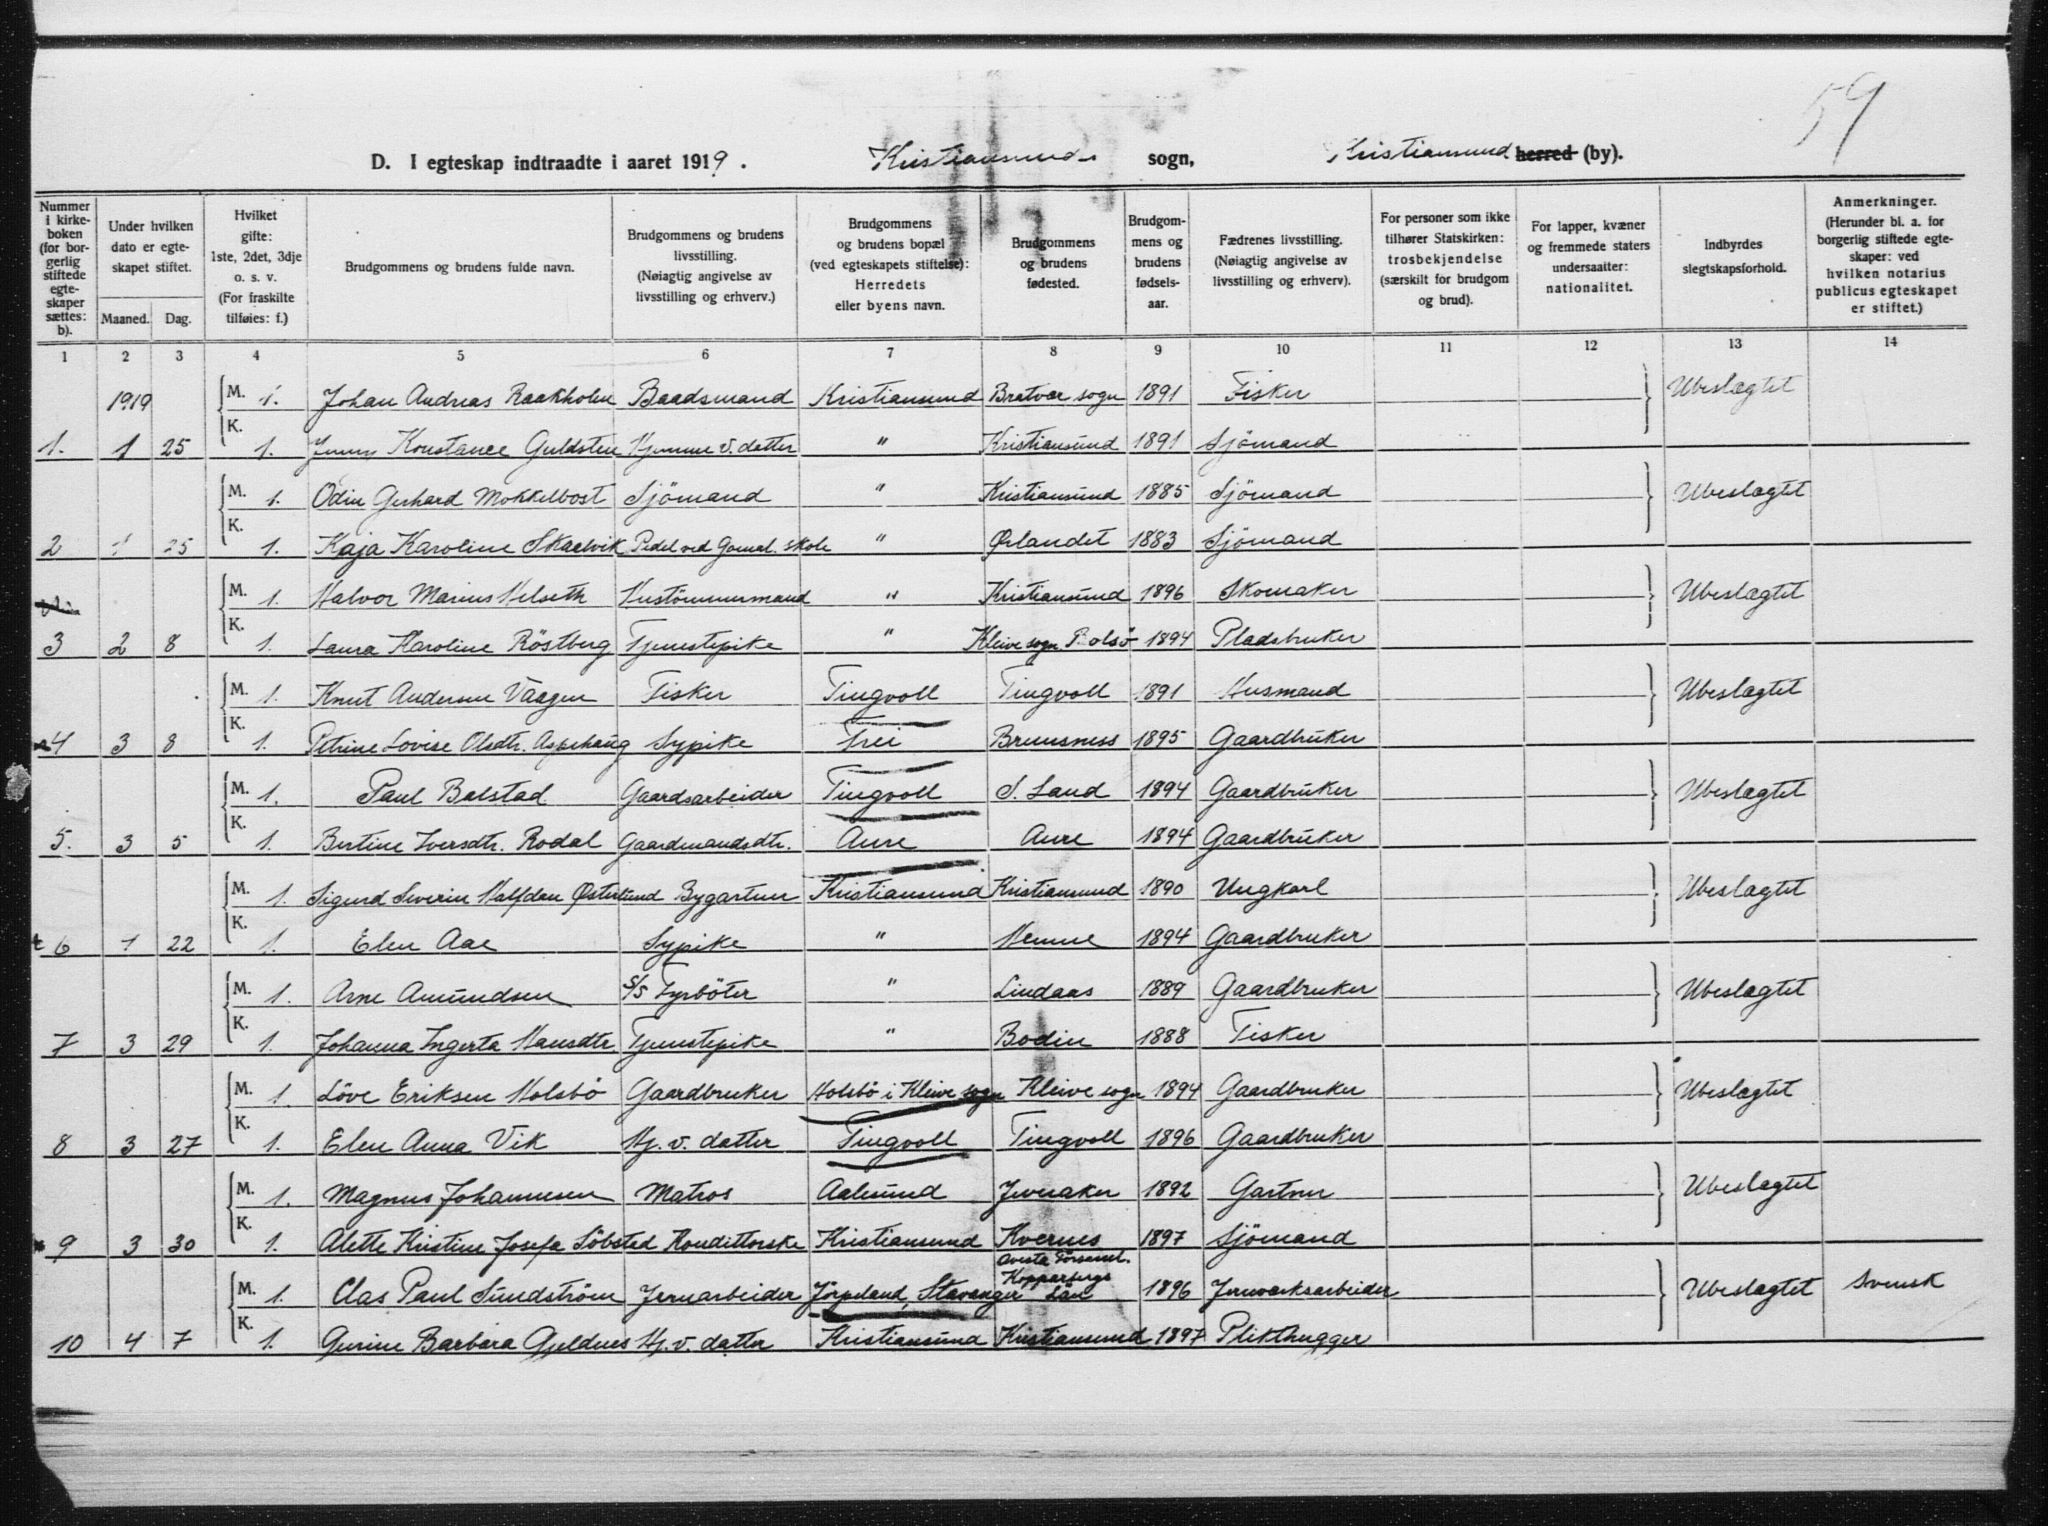 59
D. I egteskap indtraadte i aaret 1919. Kristiansunds sogn, Kristiansund herred (by).
Nummer i kirkeboken (for borgerlig stiftede egteskaper sættes: b).
Under hvilken dato er egteskapet stiftet.
Maaned. Dag.
Hvilket gifte: 1ste, 2det, 3dje o. s. v. (For fraskilte tilføies: f.)
Brudgommens og brudens fulde navn.
Brudgommens og brudens livsstilling. (Nøiagtig angivelse av livsstilling og erhverv.)
Brudgommens og brudens bopæl (ved egteskapets stiftelse): Herredets eller byens navn.
Brudgommens og brudens fødested.
Brudgommens og brudens fødselsaar.
Fædrenes livsstilling. (Nøiagtig angivelse av livsstilling og erhverv).
For personer som ikke tilhører Statskirken: trosbekjendelse (særskilt for brudgom og brud).
For lapper, kvæner og fremmede staters undersaatter: nationalitet.
Indbyrdes slegtskapsforhold.
Anmerkninger. (Herunder bl. a. for borgerlig stiftede egteskaper: ved hvilken notarius publicus egteskapet er stiftet.)
1 2 3 4 5 6 7 8 9 10 11 12 13 14
1919 M. 1. Johan Andreas Raakholm Baadsmand Kristiansund Bratvær sogn 1891 Fisker Ubeslægtet
1. 1 25 K. 1. Jenny Konstance Guldsten Hjemme v. datter " Kristiansund 1891 Sjömand
M. 1. Odin Gerhard Mokkelbost Sjömand " Kristiansund 1885 Sjömand Ubeslægtet
2 1 25 K. 1. Kaja Karoline Skaelvik Pedel ved Gomal. skole " Ørlandet 1883 Sjömand
M. 1. Halvor Marius Helseth Hustömmermand " Kristiansund 1896 Skomaker Ubeslægtet
3 2 8 K. 1. Laura Karoline Röstberg Tjenestepike " Kleive sogn Bolsö 1894 Pladsbruker
M. 1. Knut Andersen Vaagen Fisker Tingvoll Tingvoll 1891 Husmand Ubeslægtet
4 3 8 K. 1. Petrine Lovise Olsdtr. Aspehaug Sypike Frei Bremsness 1895 Gaardbruker
M. 1. Paul Balstad Gaardsarbeider Tingvoll S. Land 1894 Gaardbruker Ubeslægtet
5. 3 5 K. 1. Bertine Iversdtr. Rodal Gaardmandsdtr. Aure Aure 1894 Gaardbruker
M. 1. Sigurd Severin Halfdan Østerlund Bygartner Kristiansund Kristiansund 1890 Ungkarl Ubeslægtet
6 1 22 K. 1. Elen Aae Sypike " Hemne 1894 Gaardbruker
M. 1. Arne Amundsen S/S Fyrböter " Lindaas 1889 Gaardbruker Ubeslægtet
7 3 29 K. 1. Johanna Ingerta Hansdtr Tjenestepike " Bodin 1888 Fisker
M. 1. Löve Eriksen Holsbö Gaardbruker Holsbö i Kleive sogn Kleive sogn 1894 Gaardbruker Ubeslægtet
8 3 27 K. 1. Elen Anna Vik Hj. v. datter Tingvoll Tingvoll 1896 Gaardbruker
M. 1. Magnus Johannesen Matros Aalesund Jeveraker 1892 Gartner Ubeslægtet
9 3 30 K. 1. Alette Kristine Josefa Söbstad Kondittorske Kristiansund Kvernes 1897 Sjömand
M. 1. Clas Paul Sundström Jernarbeider Jörpeland, Stavanger Avesta Församl. Kopparbergs Län 1896 Jernverksarbeider Ubeslægtet Svensk
10 4 7 K. 1. Gurine Barbara Gjeldnes Hj. v. datter Kristiansund Kristiansund 1897 Plikthugger